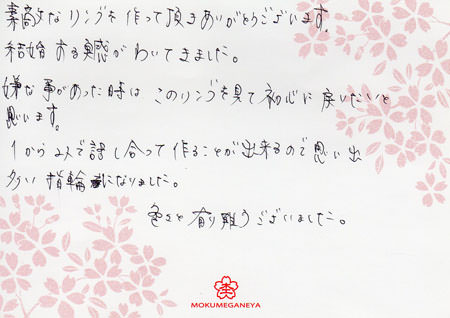 素敵なリングを作って頂きありがとうございます。
結婚する実感がわいてきました。
嫌な事があった時は このリングを見て初心に戻りたいと
思います。
1から2人で話し合って作ることが出来るので思い出
多い指輪になりました。
色々と有り難うございました。
MOKUMEGANEYA